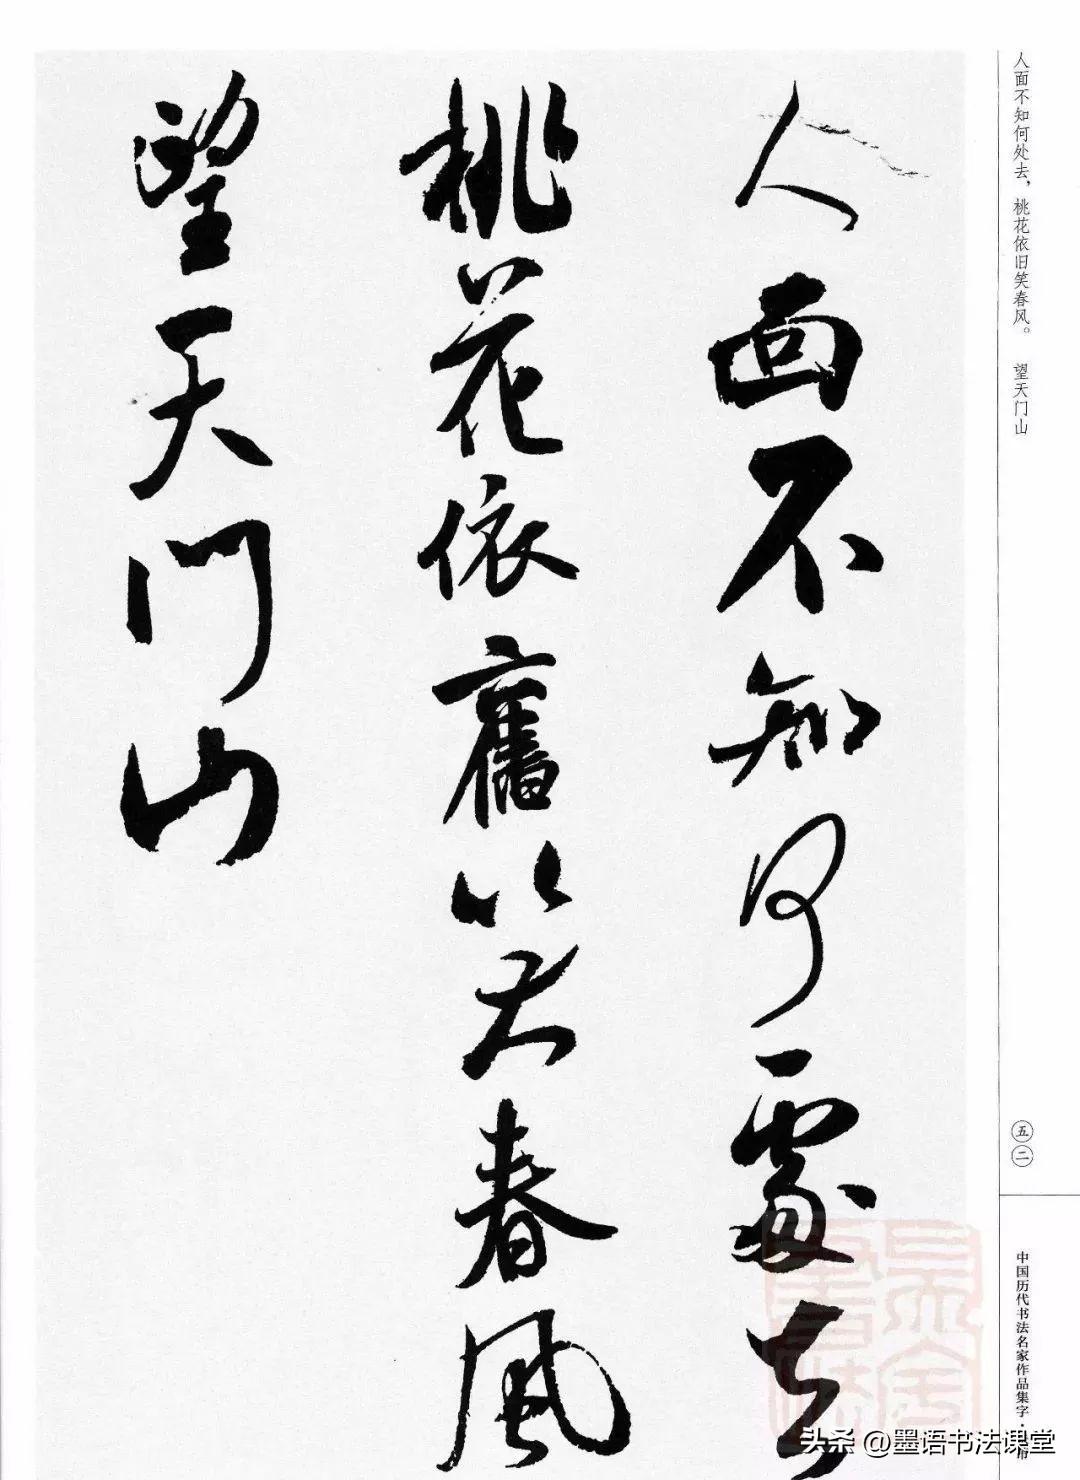 人面不知何处去，桃花依旧笑春风。 望天门山
人面不知何處去
桃花依舊笑春風
望天門山
五二
中国历代书法名家作品集字·
头条 @墨语书法课堂